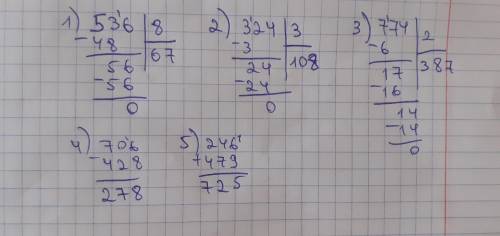 1) 536 | 8
-48 | 67
56
-56
0
2) 324 | 3
-3 | 108
24
-24
0
3) 774 | 2
-6 | 387
17
-16
14
-14
0
4) 706
-428
278
5) 246
+479
725